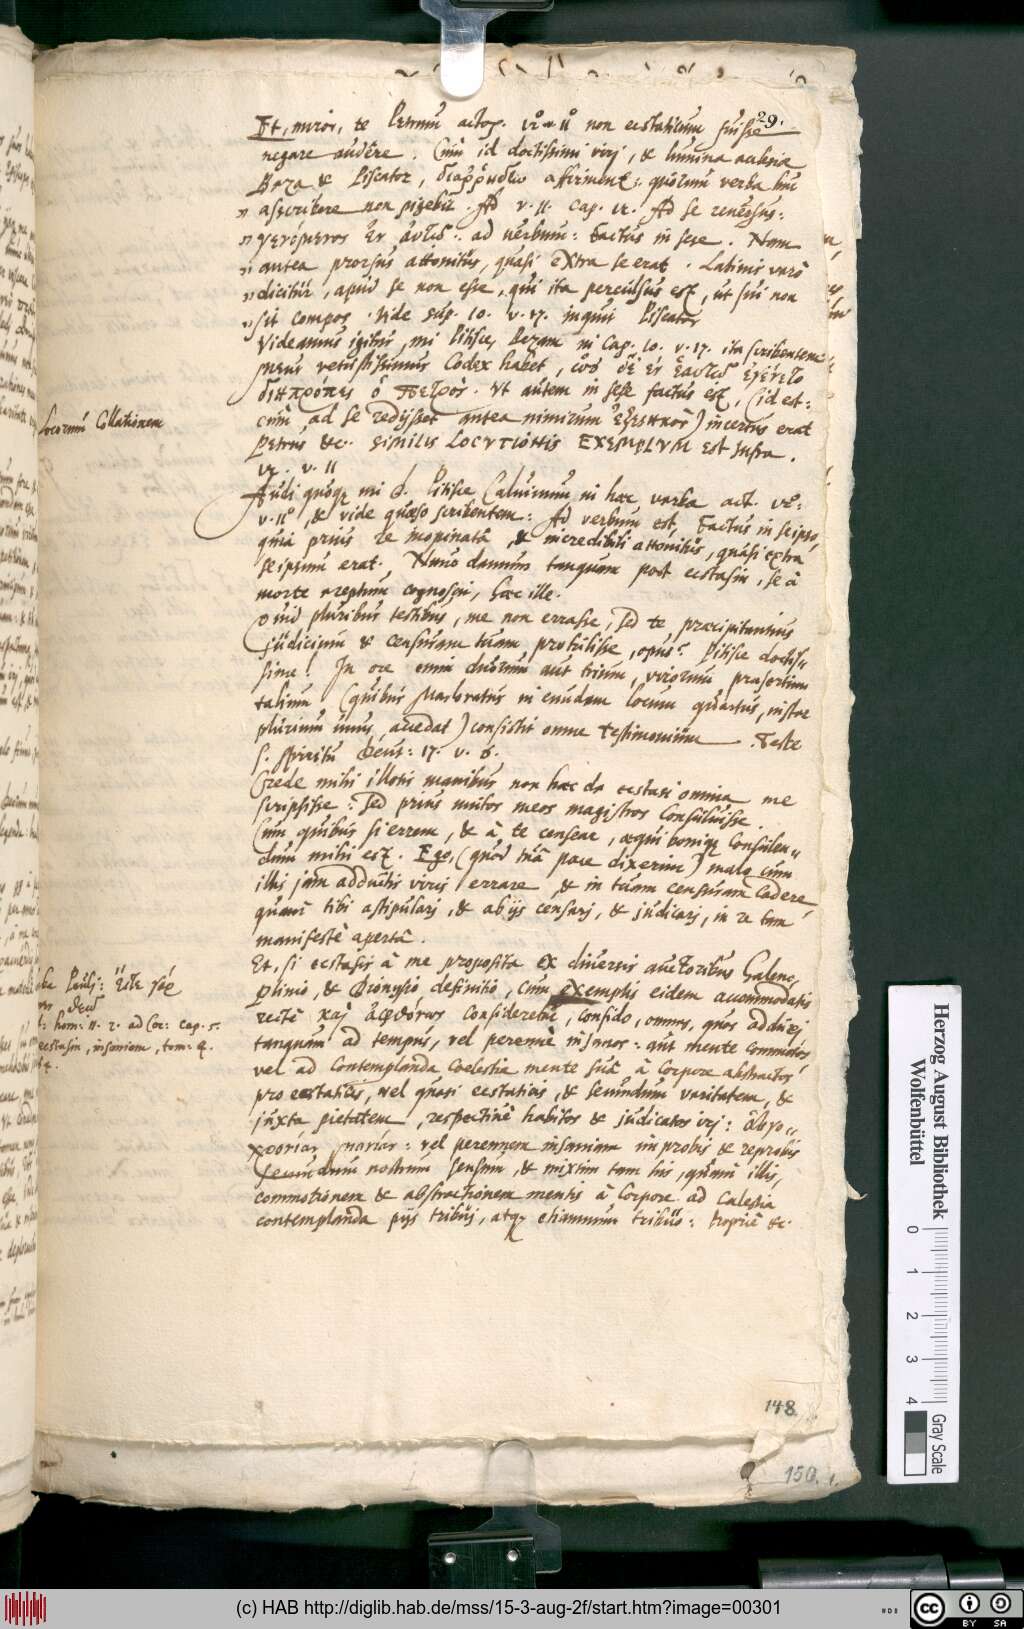 29.
Et, miror, te Petrum actor. 12 & 11 non ecstaticum fuisse
negare audere. Cum id doctissimi viri, & lumina ecclesiae
Beza & Piscator, affirment: quorum verba huc
ascribere non pigebit. Ad v. 11. cap. 12. Ad se reversus:
γενόμενος ἐν ἑαυτῷ: ad verbum: factus in sese. Nam
antea prorsus attonitus, quasi extra se erat. Latinis vero
dicitur, apud se non esse, qui ita perculsus est, ut sui non
sit compos. vide sup. 10. v. 17. inquit Piscator
Videamus igitur, mi Pitisce, Bezam in cap. 10. v. 17. ita scribentem
meus vetustissimus Codex habet, ὡς δὲ ἐν ἑαυτῷ ἐγένετο
διηπόρει ὁ Πέτρος. Ut autem in sese factus est, (id est:
cum ad se redijsset antea nimirum) incertus erat
Petrus &c. SIMILIS LOCUTIONIS EXEMPLUM est infra.
12. v. 11
Locorum Collationem
Audi quoque mi d. Pitisce Calvinum in haec verba act. 12:
v. 11, & vide quaeso scribentem: Ad verbum est, Factus in seipso,
quia prius re inopinata & incredibili attonitus, quasi extra
seipsum erat. Nunc demum tanquam post ecstasin, se à
morte ereptum cognoscit, haec ille.
Quid pluribus testibus, me non errasse, sed te praecipitantius
judicium & censuram tuam protulisse, opus? Pitisce doctis-
sime! In ore enim duorum aut trium, virorum praesertim
talium (quibus Marloratus in eundem locum quartus, instar
plurium unus, accedat) consistit omne testimonium. Teste
S. spiritu Deut: 17. v. 6.
Crede mihi illotis manibus non haec de ecstasi omnia me
scripsisse: sed prius multos meos magistros consuluisse.
Cum quibus si errem, & à te censear, aequi bonique consulen-
dum mihi est. Ego, (quod tuâ pace dixerim) malo cum
illis jam adductis viris errare & in tuam censuram cadere,
quam tibi astipulari, & ab ijs censeri, & judicari, in re tam
manifestè aperta.
Et, si ecstasis à me proposita ex diversis auctoribus Galeno,
Plinio, & Dionysio definitio, cum exemplis eidem accommodatis
rectè καὶ ἀφθόνως consideretur, confido, omnes, quos adduxi
tanquam ad tempus, vel perennè insanos: aut mente commotos
vel ad contemplanda coelestia mente suâ à corpore abstractos
pro ecstaticis, vel quasi ecstaticis, & secundum veritatem, &
juxta pietatem, respectivè habitos & judicatos iri:
vel perennem insaniam improbis & reprobis
secundum nostrum sensum, & mixtim tam his, quàm illis,
commotionem & abstractionem mentis à corpore ad caelestia
contemplanda pijs tribui, atque etiamnum tribuo: propriè &c.
hom: 11. 2. ad Cor: cap. 5.
ecstasin, insaniam, tom: 4.
148
150.
Herzog August Bibliothek
Wolfenbüttel
0 1 2 3 4
Gray Scale
(c) HAB http://diglib.hab.de/mss/15-3-aug-2f/start.htm?image=00301
cc BY SA